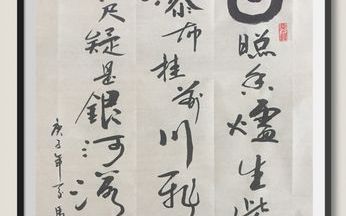 日照香爐生紫
瀑布挂前川飛
尺疑是銀河落
庚子年